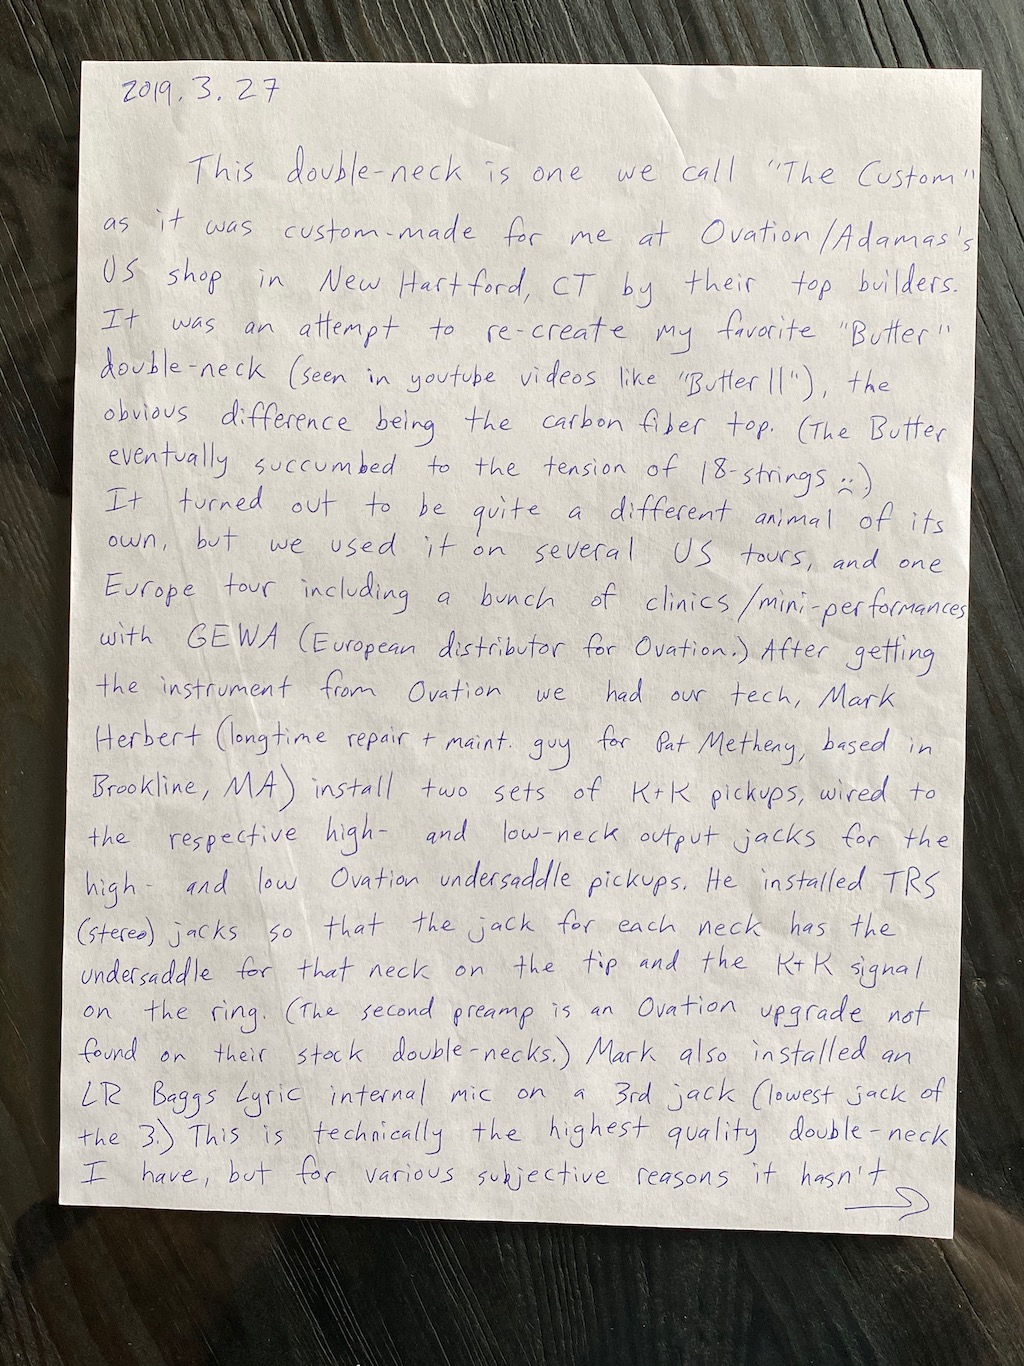 2019.3.27
This double-neck is one we call "The Custom"
as it was custom-made for me at Ovation/Adamas's
US shop in New Hartford, CT by their top builders.
It was an attempt to re-create my favorite "Butter"
double-neck (seen in youtube videos like "Butter II"), the
obvious difference being the carbon fiber top. (The Butter
eventually succumbed to the tension of 18-strings :( )
It turned out to be quite a different animal of its
own, but we used it on several US tours, and one
Europe tour including a bunch of clinics/mini-performances
with GEWA (European distributor for Ovation.) After getting
the instrument from Ovation we had our tech, Mark
Herbert (longtime repair + maint. guy for Pat Metheny, based in
Brookline, MA) install two sets of K+K pickups, wired to
the respective high- and low-neck output jacks for the
high- and low Ovation undersaddle pickups. He installed TRS
(stereo) jacks so that the jack for each neck has the
undersaddle for that neck on the tip and the K+K signal
on the ring. (The second preamp is an Ovation upgrade not
found on their stock double-necks.) Mark also installed an
LR Baggs Lyric internal mic on a 3rd jack (lowest jack of
the 3.) This is technically the highest quality double-neck
I have, but for various subjective reasons it hasn't →